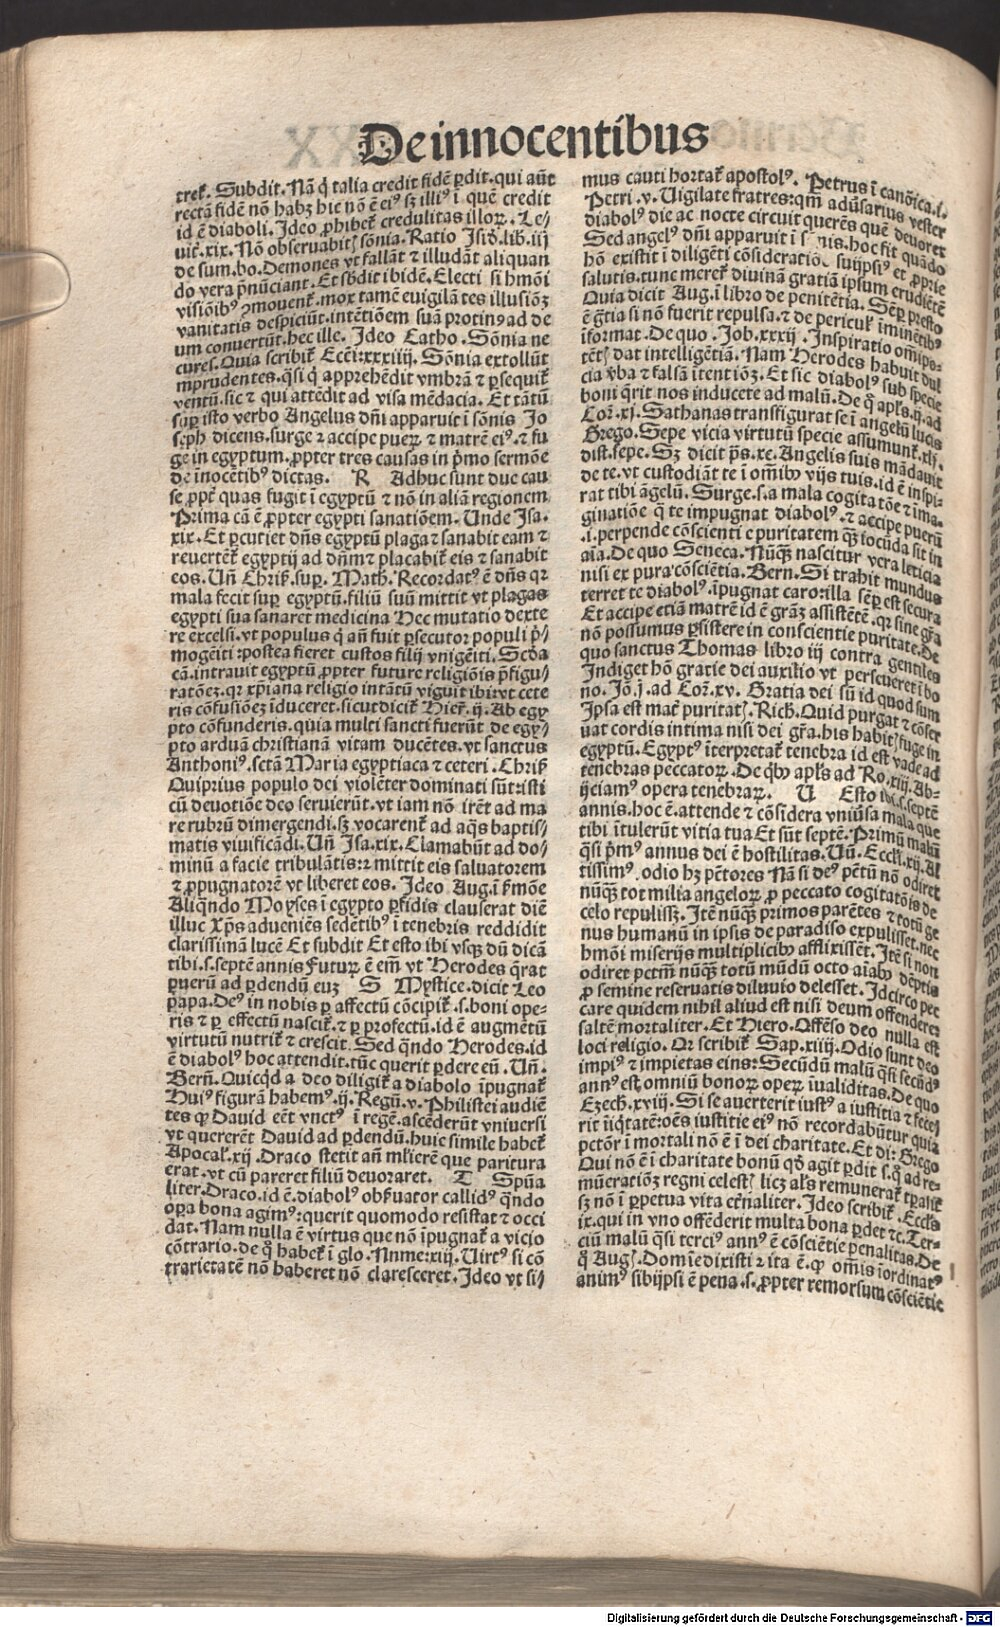 De innocentibus
tret᷑. Subdit. Nā q̇ talia credit fidē ꝑdit. qui aūt
rectā fidē nō habꝫ hic nō ē eiꝰ sꝫ illiꝰ ī quē credit
id ē diaboli. Ideo ꝓhibet᷑ credulitas illoꝝ. Le⸗
uit̄. xix. Nō obseruabit⸗ sōnia. Ratio Isid̄. lib. iij
de sum. bo. Demones vt fallāt ⁊ illudāt aliquan
do vera p̄nūciant. Et sb̄dit ibidē. Electi si hmōi
visiōibꝰ ꝯmouent᷑. mox tamē euigilātes illusiōꝫ
vanitatis despiciūt. intētiōem suā protinꝰ ad de
um conuertūt. hec ille. Ideo Catho. Sōnia ne
cures. Quia scribit᷑ Ecc̄i: xxxiiij. Sōnia extollūt
imprudentes. q̄si q̇ apprehēdit vmbrā ⁊ ꝑsequit᷑
ventū. sic ⁊ qui attēdit ad visa mēdacia. Et tātū
suꝑ isto verbo Angelus dn̄i apparuit ī sōnis Jo
seph dicens. surge ⁊ accipe pueꝝ ⁊ matrē eiꝰ. ⁊ fu
ge in egyptum. ꝓpter tres causas in p̄mo sermōe
de inocētibꝰ dictas. R Adhuc sunt due cau
se ꝓpt̄ quas fugit ī egyptū ⁊ nō in aliā regionem
Prima cā ē ꝓpter egypti sanatiōem. Unde Isa.
xix. Et ꝑcutiet dn̄s egyptū plaga ⁊ sanabit eam ⁊
reuertēt᷑ egyptij ad dn̄m ⁊ placabit᷑ eis ⁊ sanabit
eos. Un̄ Chriß. suꝑ. Math̄. Recordatꝰ ē dn̄s qꝛ
mala fecit suꝑ egyptū. filiū suū mittit vt plagas
egypti sua sanaret medicina Hec mutatio dexte
re excelsi. vt populus q̇ an̄ fuit ꝑsecutor populi p̄⸗
mogēiti: postea fieret custos filij vnigēiti. Scd̄a
cā. intrauit egyptū ꝓpter future religiōis p̄figu⸗
ratōeꝫ. qꝛ xp̄iana religio intātū viguit ibi: vt cete
ris cōfusiōeꝫ īduceret. sicut dicit᷑ Hier̄. ij. Ab egy
pto cōfunderis. quia multi sancti fuerūt de egy⸗
pto arduā christianā vitam ducētes. vt sanctus
Anthoniꝰ. sctā Maria egyptiaca ⁊ ceteri. Chriß
Qui prius populo dei violēter dominati sūt: isti
cū deuotiōe deo seruierūt. vt iam nō irēt ad ma
re rubrū dimergendi. sꝫ vocarent᷑ ad aq̄s baptis⸗
matis viuificādi. Un̄ Isa. xix. Clamabūt ad do⸗
minū a facie tribulātis: ⁊ mittit eis saluatorem
⁊ ꝓpugnatorē vt liberet eos. Ideo Aug. ī s̄mōe
Aliqn̄do Moyses ī egypto ꝑfidis clauserat diē
illuc Xp̄s adueniēs sedētibꝰ ī tenebris reddidit
clarissimā lucē Et subdit Et esto ibi vsqꝫ dū dicā
tibi. s. septē annis Futuꝝ ē em̄ vt Herodes q̄rat
puerū ad ꝑdendū euꝫ S Mystice. dicit Leo
papa. Deꝰ in nobis ꝑ affectū cōcipit᷑. s. boni ope⸗
ris ⁊ ꝑ effectū nascit᷑. ⁊ ꝑ ꝓfectū. id ē augmētū
virtutū nutrit᷑ ⁊ crescit. Sed qn̄do Herodes. id
ē diabolꝰ hoc attendit. tūc querit ꝑdere eū. Un̄.
Bern̄. Quicq̇d a deo diligit᷑ a diabolo īpugnat᷑
Huiꝰ figurā habemꝰ. ij. Regū. v. Philistei audiē
tes ꝙ Dauid eēt vnctꝰ ī regē. ascēderūt vniuersi
vt quererēt Dauid ad ꝑdendū. huic simile habet᷑
Apocal᷑. xij. Draco stetit an̄ mĺierē que paritura
erat. vt cū pareret filiū deuoraret. T Spūa
liter. Draco. id ē. diabolꝰ obẜuator callidꝰ qn̄do
oꝑa bona agimꝰ: querit quomodo resistat ⁊ occi
dat. Nam nulla ē virtus que nō īpugnat᷑ a vicio
cōtrario. de q̊ habet᷑ ī glo. Nume: xiij. Uirtꝰ si cō
trarietatē nō haberet nō claresceret. Ideo vt si⸗
mus cauti hortat᷑ apostolꝰ. Petrus ī canōica. j.
Petri. v. Uigilate fratres: qm̄ adūsarius vester
diabolꝰ die ac nocte circuit querēs quē deuoret
Sed angelꝰ dn̄i apparuit ī nis. hoc fit quādo
hō existit ī diligēti cōsideratiō suijpsiꝰ et ꝓprie
salutis. tunc meret᷑ diuinā gratiā ipsum erudiētē
Quia dicit Aug. ī libro de penitētia. Sēꝑ presto
ē gr̄tia si nō fuerit repulsa. ⁊ de pericul᷑ iminētibꝰ
īformat. De quo. Job. xxxij. Inspiratio omīpo⸗
tēt⸗ dat intelligētiā. Nam Herodes habuit dul
cia v̄ba ⁊ falsā ītentiōꝫ. Et sic diabolꝰ sub specie
boni q̄rit nos inducete ad malū. De q̊ apl̄s. ij. ad
Cor̄. xj. Sathanas transfigurat se ī angelū lucis
Grego. Sepe vicia virtutū specie assumunt᷑. xlj.
dist. sepe. Sꝫ dicit p̄s. xc. Angelis suis mādauit
de te. vt custodiāt te ī om̄ibꝫ vijs tuis. id ē inspi⸗
rat tibi āgelū. Surge. s. a mala cogitatōe ⁊ ima⸗
ginatiōe q̄ te impugnat diabolꝰ. ⁊ accipe puerū
.i. perpende cōscientie puritatem qꝫ iocūda sit in
aīa. De quo Seneca. Nūq̄ꝫ nascitur vera leticia
nisi ex pura cōsciētia. Bern. Si trahit mundus
terret te diabolꝰ. īpugnat caro: illa sēꝑ est secura
Et accipe etiā matrē id ē gr̄aꝫ assistētē. qꝛ sine gr̄a
nō possumus ꝑsistere in conscientie puritate. De
quo sanctus Thomas libro iij contra gentiles
Indiget hō gratie dei auxilio vt perseueret ī bo
no. Iō. j. ad Cor̄. xv. Gratia dei sū id quod sum
Ipsa est mat᷑ puritat⸗. Rich. Quid purgat ⁊ cōser
uat cordis intima nisi dei gr̄a. his habit⸗ fuge in
egyptū. Egyptꝰ īterpretat᷑ tenebra id est vade ad
tenebras peccatoꝝ. De qbꝫ apl̄s ad Ro. xiij. Ab⸗
ijciamꝰ opera tenebraꝝ. U Esto ibi. s. septē
annis. hoc ē. attende ⁊ cōsidera vniūsa mala que
tibi ītulerūt vitia tua Et sūt septē. Primū malū
q̄si p̄mꝰ annus dei ē hostilitas. Un̄. Eccl̄i. xij. Al
tissimꝰ. odio hꝫ pctōres Nā si deꝰ pctū nō odiret
nūq̄ꝫ tot milia angeloꝝ ꝓ peccato cogitatōis de
celo repulissꝫ. Itē nūq̄ꝫ primos parētes ⁊ totū ge
nus humanū in ipsis de paradiso expulisset. nec
hmōi miserijs multiplicibꝫ afflixissēt. Itē si non
odiret pctm̄ nūq̄ꝫ totū mūdū octo aīabꝫ dēptis
ꝓ semine reseruatis diluuio delesset. Idcirco pec
care quidem nihil aliud est nisi deum offendere:
saltē mortaliter. Et Hiero. Offēso deo nulla est
loci religio. Qꝛ scribit᷑ Sap. xiiij. Odio sunt deo
impiꝰ ⁊ impietas eius: Secūdū malū q̄si secūdꝰ
annꝰ est omniū bonoꝝ opeꝝ īualiditas. De quo
Ezech̄. xviij. Si se auerterit iustꝰ a iustitia ⁊ fecej
rit īiq̇tatē: oēs iustitie eiꝰ nō recordabūtur quia
pctōr ī mortali nō ē ī dei charitate. Et di: Grego
Qui nō ē ī charitate bonū qd̄ agit ꝑdit s. q̊ ad re⸗
mūeratiōꝫ regni celest⸗ licꝫ alr̄s remunerat᷑ tꝑalit᷑
sꝫ nō ī ꝑpetua vita et̄naliter. Ideo scribit᷑. Eccl̄s
ix. qui in vno offēderit multa bona ꝑdet ⁊c. Ter⸗
ciū malū q̄si terciꝰ annꝰ ē cōsciētie penalitas. De
q̊ Aug⸗. Domīe dixisti ⁊ ita ē. ꝙ om̄is īordinatꝰ
animꝰ sibijpsi ē pena. s. ꝓpter remorsum cōsciētie
Digitalisierung gefördert durch die Deutsche Forschungsgemeinschaft - DFG